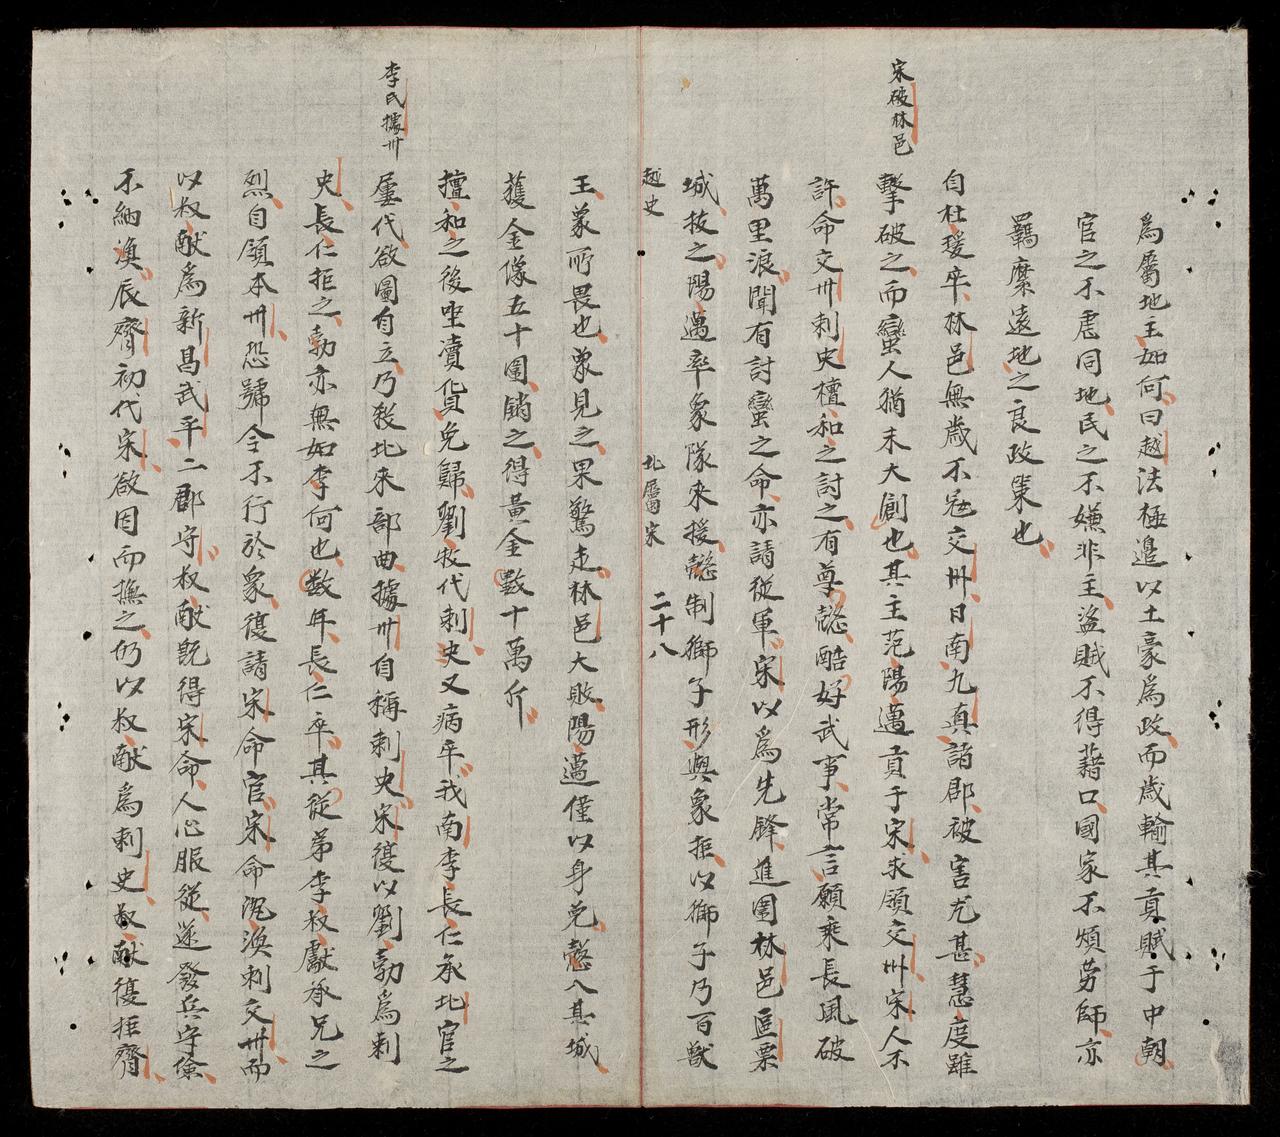 為屬地主如何曰越法極邉以土豪為政而歲輸其貢賦于中朝
官之不慮同地民之不嫌非主盗賊不得藉口國家不煩勞師亦
羈縻遠地之良政策也
宋破林邑
自杜瑗卒林邑無歲不冦交州日南九真諸郡被害尤甚慧度雖
擊破之而蠻人猶未大創也其主范陽邁貢于宋求領交州宋人不
許命交州刺史檀和之討之有尊慤酷好武事常言願乘長風破
萬里浪聞有討蠻之命亦請從軍宋以為先鋒進圍林邑區粟
城拔之陽邁率象隊來援慤制獅子形與象拒以獅子乃百獸
越史 北屬宋 二十八
王象所畏也象見之果驚走林邑大敗陽邁僅以身免慤入其城
獲金像五十圍銷之得黃金數十萬斤
李氏據州
擅和之後坐瀆貨免歸劉牧代刺史又病卒我南李長仁承北官之
屢代欲圖自立乃殺北來部曲據州自稱刺史宋復以劉勃為刺
史長仁拒之勃亦無如李何也数年長仁卒其從弟李叔獻承兄之
烈自領本州恐號令不行於衆復請宋命官宋命沈渙刺交州而
以叔献為新昌武平二郡守叔献既得宋命人心服從遂發兵守儉
不納渙辰齊初代宋欲因而撫之仍以叔献為刺史叔献復拒齊